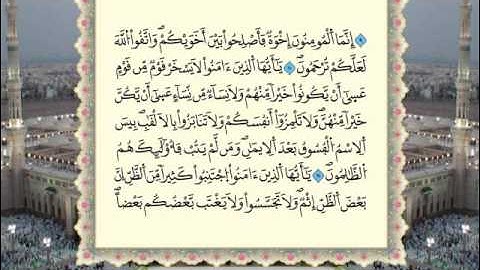 ۞ إِنَّمَا اَ۬لْمُومِنُونَ إِخْوَةٞ فَأَصْلِحُواْ بَيْنَ أَخَوَيْكُمْۖ وَاتَّقُواْ اُ۬للَّهَ
لَعَلَّكُمْ تُرْحَمُونَۖ ۞ يَٰٓأَيُّهَا اَ۬لذِينَ ءَامَنُواْ لَا يَسْخَرْ قَوْمٞ مِّن قَوْمٍ
عَسَىٰٓ أَنْ يَّكُونُواْ خَيْراٗ مِّنْهُمْ وَلَا نِسَآءٞ مِّن نِّسَآءٍ عَسَىٰٓ أَنْ يَّكُنَّ
خَيْراٗ مِّنْهُنَّۖ وَلَا تَلْمِزُوٓاْ أَنفُسَكُمْ وَلَا تَنَابَزُواْ بِالَالْقَٰبِۖ بِيسَ
اَ۬لِاسْمُ اُ۬لْفُسُوقُ بَعْدَ اَ۬لِايمَٰنِۖ وَمَن لَّمْ يَتُبْ فَأُوْلَٰٓئِكَ هُمُ
اُ۬لظَّٰلِمُونَۖ ۞ يَٰٓأَيُّهَا اَ۬لذِينَ ءَامَنُواْ اُ۪جْتَنِبُواْ كَثِيراٗ مِّنَ اَ۬لظَّنِّ إِنَّ
بَعْضَ اَ۬لظَّنِّ إِثْمٞۖ وَلَا تَجَسَّسُواْ وَلَا يَغْتَب بَّعْضُكُم بَعْضاًۖ